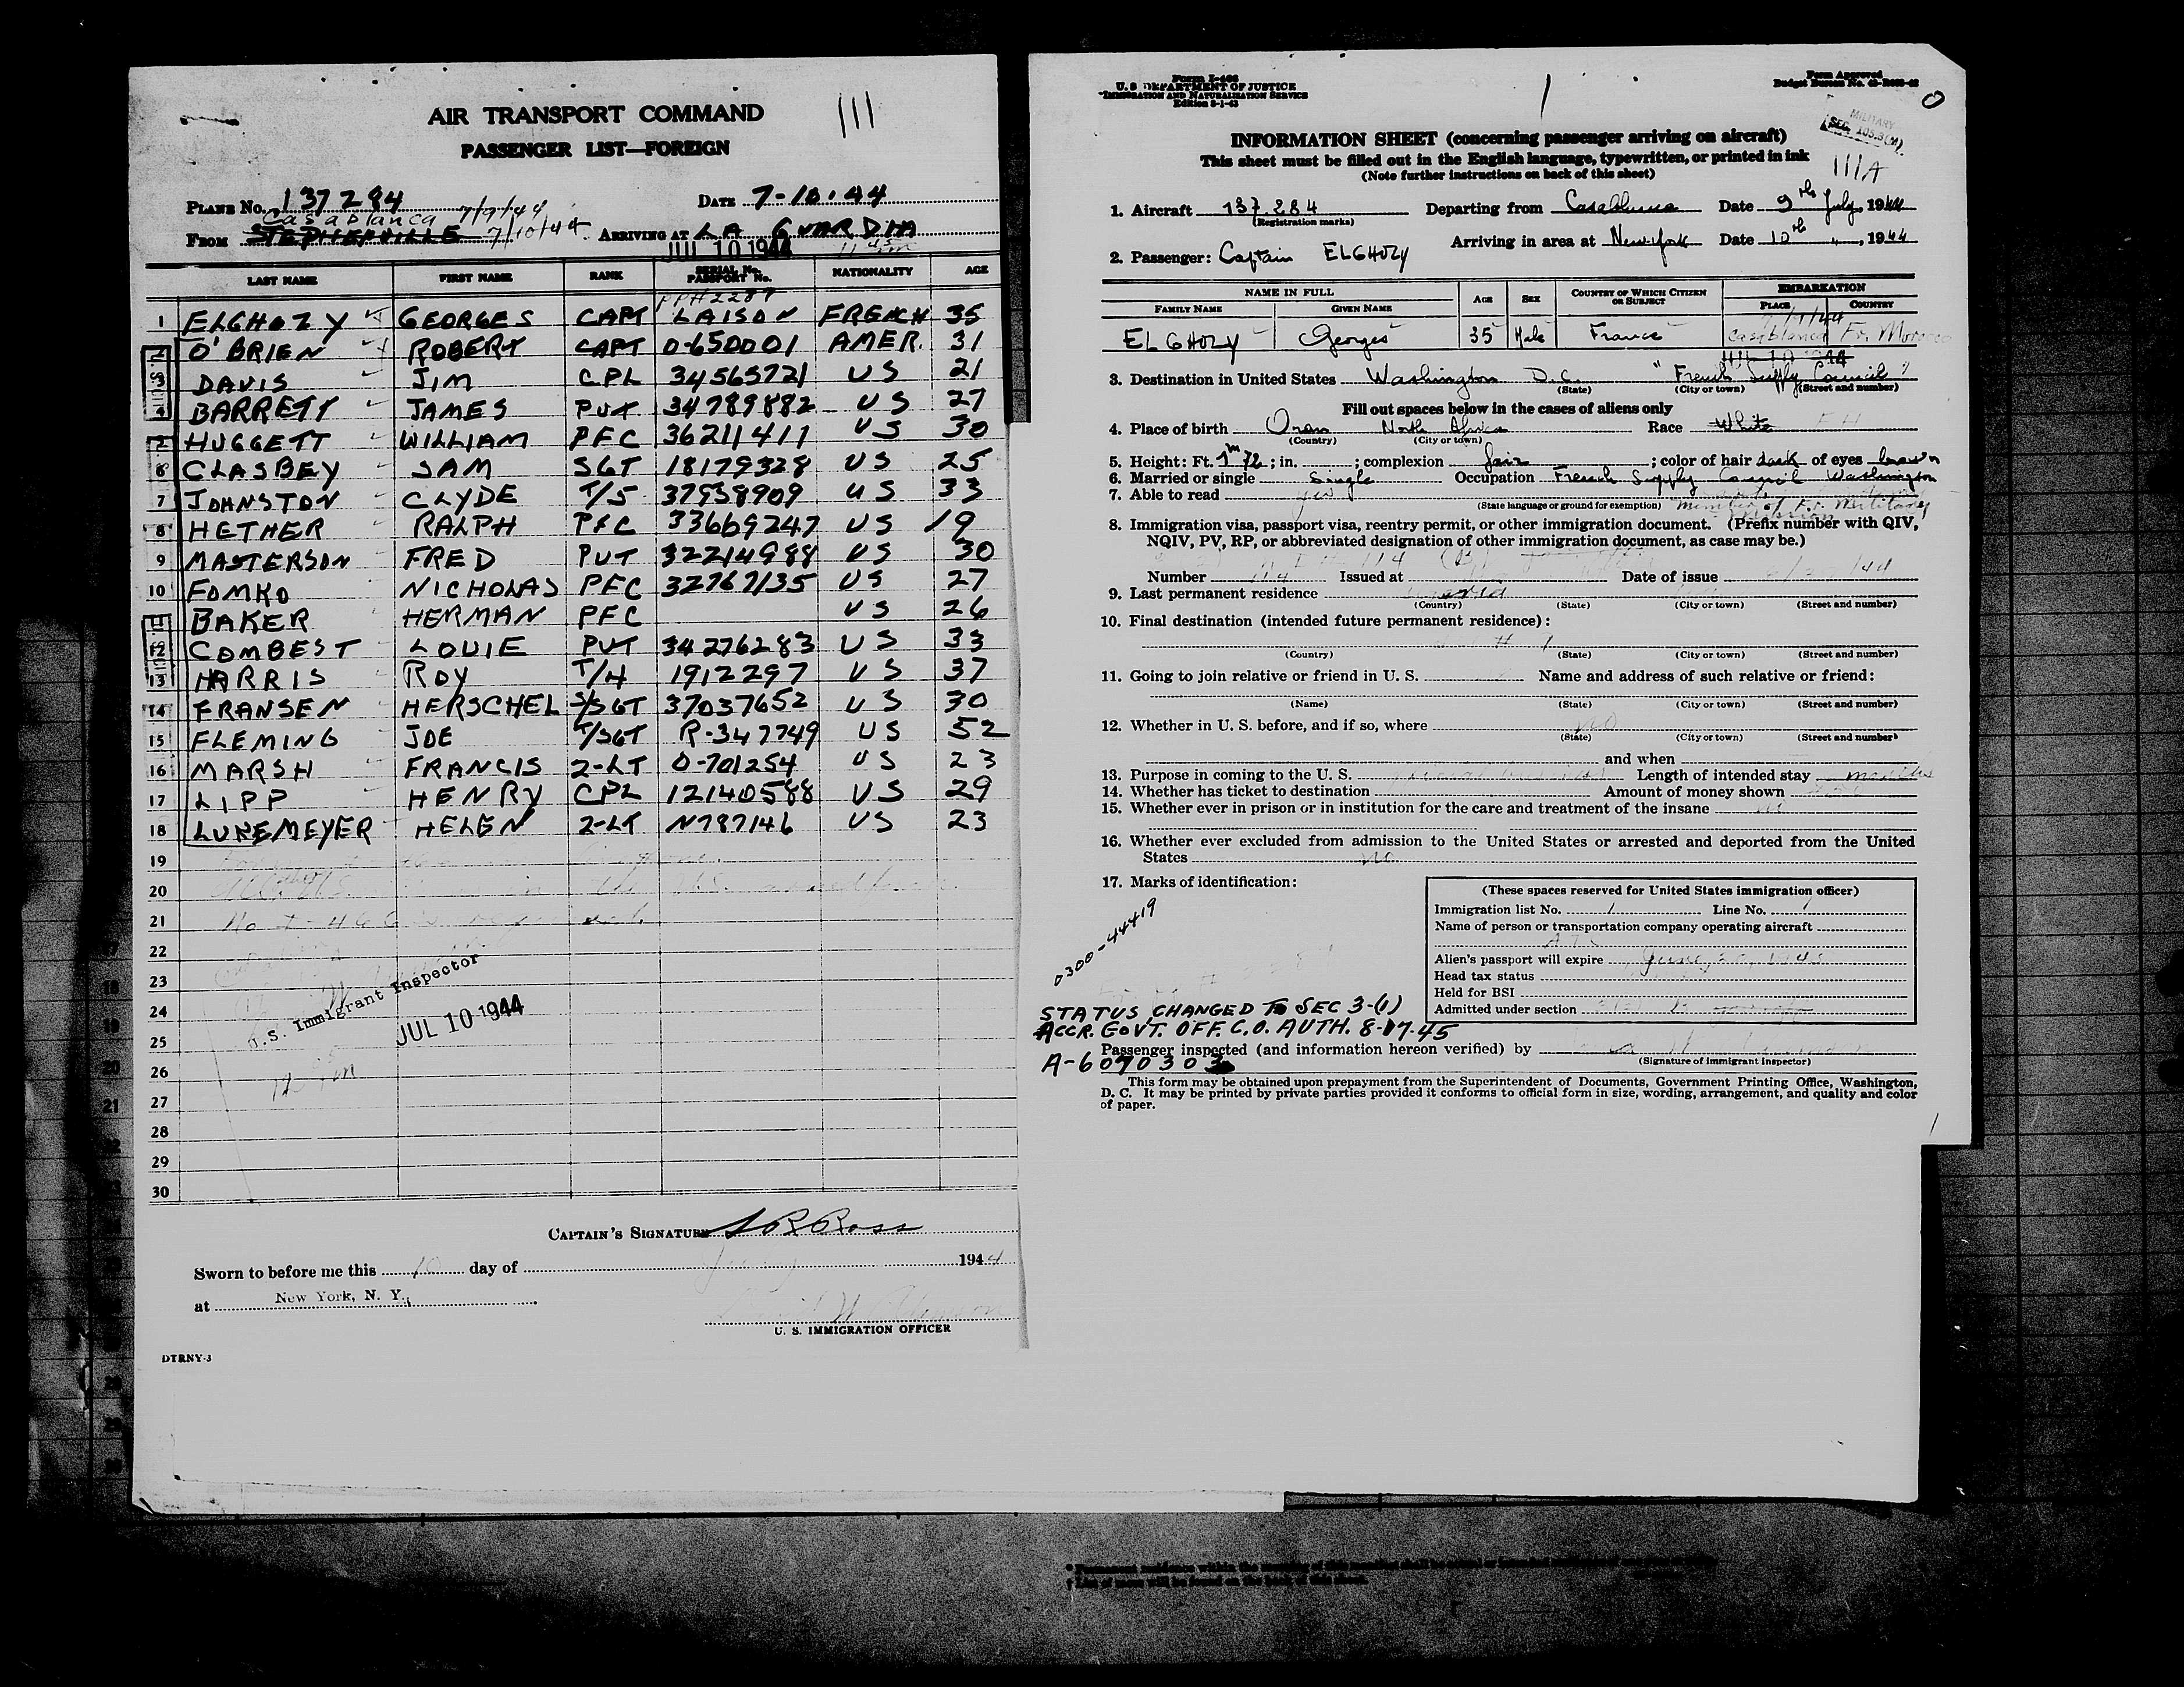 AIR TRANSPORT COMMAND
111
PASSENGER LIST—FOREIGN
PLANE No. 137284 DATE 7-10-44
Casablanca 7/9/44
FROM STEPHENVILLE 7/10/44 ARRIVING AT LA GUARDIA
JUL 10 1944
LAST NAME FIRST NAME RANK SERIAL No. PASSPORT No. NATIONALITY AGE
1 ELGHOZY GEORGES CAPT LAISON FRENCH 35
2 O'BRIEN ROBERT CAPT O-650001 AMER. 31
3 DAVIS JIM CPL 34565721 US 21
4 BARRETT JAMES PVT 34789882 US 27
5 HUGGETT WILLIAM PFC 36211411 US 30
6 CLASBEY SAM SGT 18179328 US 25
7 JOHNSTON CLYDE T/5 37538909 US 33
8 HETHER RALPH PFC 33669247 US 19
9 MASTERSON FRED PVT 32214988 US 30
10 FOMKO NICHOLAS PFC 32767135 US 27
11 BAKER HERMAN PFC US 26
12 COMBEST LOUIE PVT 34276283 US 33
13 HARRIS ROY T/4 1912297 US 37
14 FRANSEN HERSCHEL S/SGT 37037652 US 30
15 FLEMING JOE T/SGT R-347749 US 52
16 MARSH FRANCIS 2-LT O-701254 US 23
17 LIPP HENRY CPL 12140588 US 29
18 LUKEMEYER HELEN 2-LT N787146 US 23
19
20
21
22
23
24
25
26
27
28
29
30
U.S. Immigrant Inspector
JUL 10 1944
CAPTAIN'S SIGNATURE
Sworn to before me this 10 day of 1944
at New York, N. Y.
U. S. IMMIGRATION OFFICER
DTRNY-3
Form I-466
U. S. DEPARTMENT OF JUSTICE
IMMIGRATION AND NATURALIZATION SERVICE
Edition 8-1-43
Form Approved
INFORMATION SHEET (concerning passenger arriving on aircraft)
This sheet must be filled out in the English language, typewritten, or printed in ink
(Note further instructions on back of this sheet)
111A
1. Aircraft 137.284 Departing from Casablanca Date 9th July, 1944
(Registration marks)
Arriving in area at New-York Date 10th " , 1944
2. Passenger: Captain ELGHOZY
NAME IN FULL AGE SEX COUNTRY OF WHICH CITIZEN OR SUBJECT EMBARKATION
FAMILY NAME GIVEN NAME PLACE COUNTRY
ELGHOZY Georges 35 Male France Casablanca Fr. Morocco
3. Destination in United States Washington D.C. "French Supply Council"
(State) (City or town) (Street and number)
Fill out spaces below in the cases of aliens only
4. Place of birth Oran North Africa Race White
(Country) (City or town)
5. Height: Ft. 1m72; in. ; complexion fair ; color of hair dark of eyes brown
6. Married or single Single Occupation French Supply Council Washington
7. Able to read yes
(State language or ground for exemption) member of Fr. Military Mission
8. Immigration visa, passport visa, reentry permit, or other immigration document. (Prefix number with QIV,
NQIV, PV, RP, or abbreviated designation of other immigration document, as case may be.)
Number Issued at Date of issue
9. Last permanent residence
(Country) (State) (City or town) (Street and number)
10. Final destination (intended future permanent residence):
(Country) (State) (City or town) (Street and number)
11. Going to join relative or friend in U. S. Name and address of such relative or friend:
(Name) (State) (City or town) (Street and number)
12. Whether in U. S. before, and if so, where no
(State) (City or town) (Street and number)
and when
13. Purpose in coming to the U. S. Length of intended stay months
14. Whether has ticket to destination Amount of money shown
15. Whether ever in prison or in institution for the care and treatment of the insane no
16. Whether ever excluded from admission to the United States or arrested and deported from the United
States no
17. Marks of identification:
0300-44419
(These spaces reserved for United States immigration officer)
Immigration list No. 1 Line No. 1
Name of person or transportation company operating aircraft
Alien's passport will expire
Head tax status
Held for BSI
Admitted under section
STATUS CHANGED TO SEC 3-(1)
ACCR. GOVT. OFF. C.O. AUTH. 8-17-45
A-6070303
Passenger inspected (and information hereon verified) by
(Signature of immigrant inspector)
This form may be obtained upon prepayment from the Superintendent of Documents, Government Printing Office, Washington,
D. C. It may be printed by private parties provided it conforms to official form in size, wording, arrangement, and quality and color
of paper.